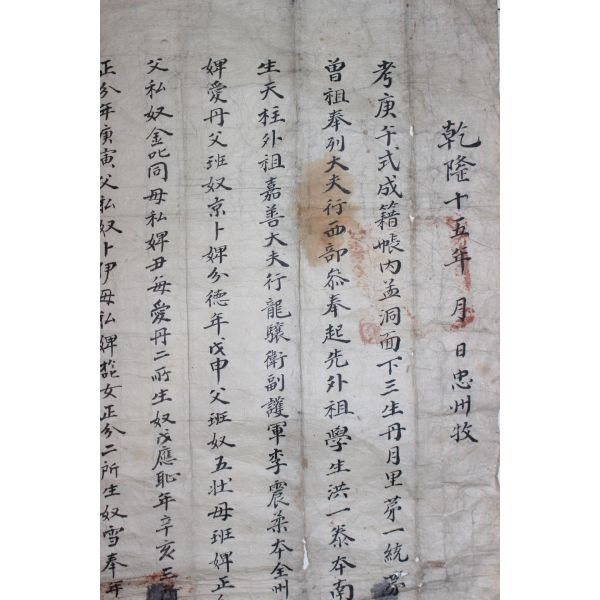 乾隆十五年 月 日忠州牧
考庚午式成籍帳內孟洞面下三生丹月里第一統第
曾祖奉列大夫行西部叅奉起先外祖學生洪一泰本南
生天柱外祖嘉善大夫行龍驤衛副護軍李震柔本全州
婢愛丹父班奴京卜婢分德年戊申父班奴五壯母班婢正
父私奴金叱同母私婢丑每愛丹二所生奴戊應耻年辛亥三所
正分年庚寅父私奴卜伊母私婢 女正分二所生奴雪奉年